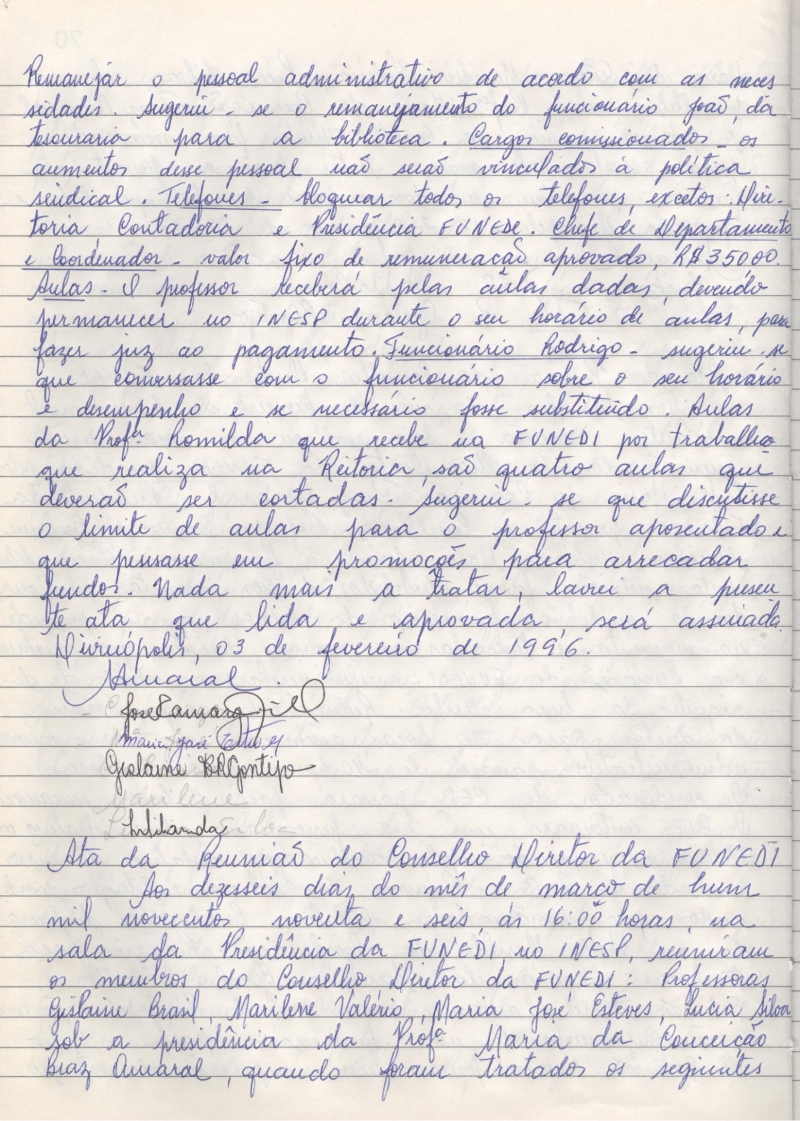 Remanejar o pessoal administrativo de acordo com as neces
sidades. Sugeriu-se o remanejamento do funcionário João, da
tesouraria para a biblioteca. Cargos comissionados - os
aumentos desse pessoal não serão vinculados à política
sindical. Telefones - bloquear todos os telefones, excetos: Dire-
toria, Contadoria e Presidência FUNEDI. Chefe de Departamento
e Coordenador - valor fixo de remuneração aprovado, R$350,00.
Aulas - O professor receberá pelas aulas dadas, devendo
permanecer no INESP durante o seu horário de aulas, para
fazer juz ao pagamento. Funcionário Rodrigo - sugeriu-se
que conversasse com o funcionário sobre o seu horário
e desempenho e se necessário fosse substituído. Aulas
da Profª Romilda que recebe na FUNEDI por trabalho
que realiza na Reitoria, são quatro aulas que
deverão ser cortadas. Sugeriu-se que discutisse
o limite de aulas para o professor aposentado e
que pensasse em promoções para arrecadar
fundos. Nada mais a tratar, lavrei a presen
te ata que lida e aprovada, será assinada.
Divinópolis, 03 de fevereiro de 1996.
Amaral.
José Camara
Maria José Esteves
Gislaine B R Gontijo
Marilene
Ata da Reunião do Conselho Diretor da FUNEDI
Aos dezesseis dias do mês de março de hum
mil novecentos noventa e seis, às 16:00 horas, na
sala da Presidência da FUNEDI, no INESP, reuniram
os membros do Conselho Diretor da FUNEDI: Professoras
Gislaine Brasil, Marilene Valério, Maria José Esteves, Lucia Silva
sob a presidência da Profª Maria da Conceição
Braz Amaral, quando foram tratados os seguintes